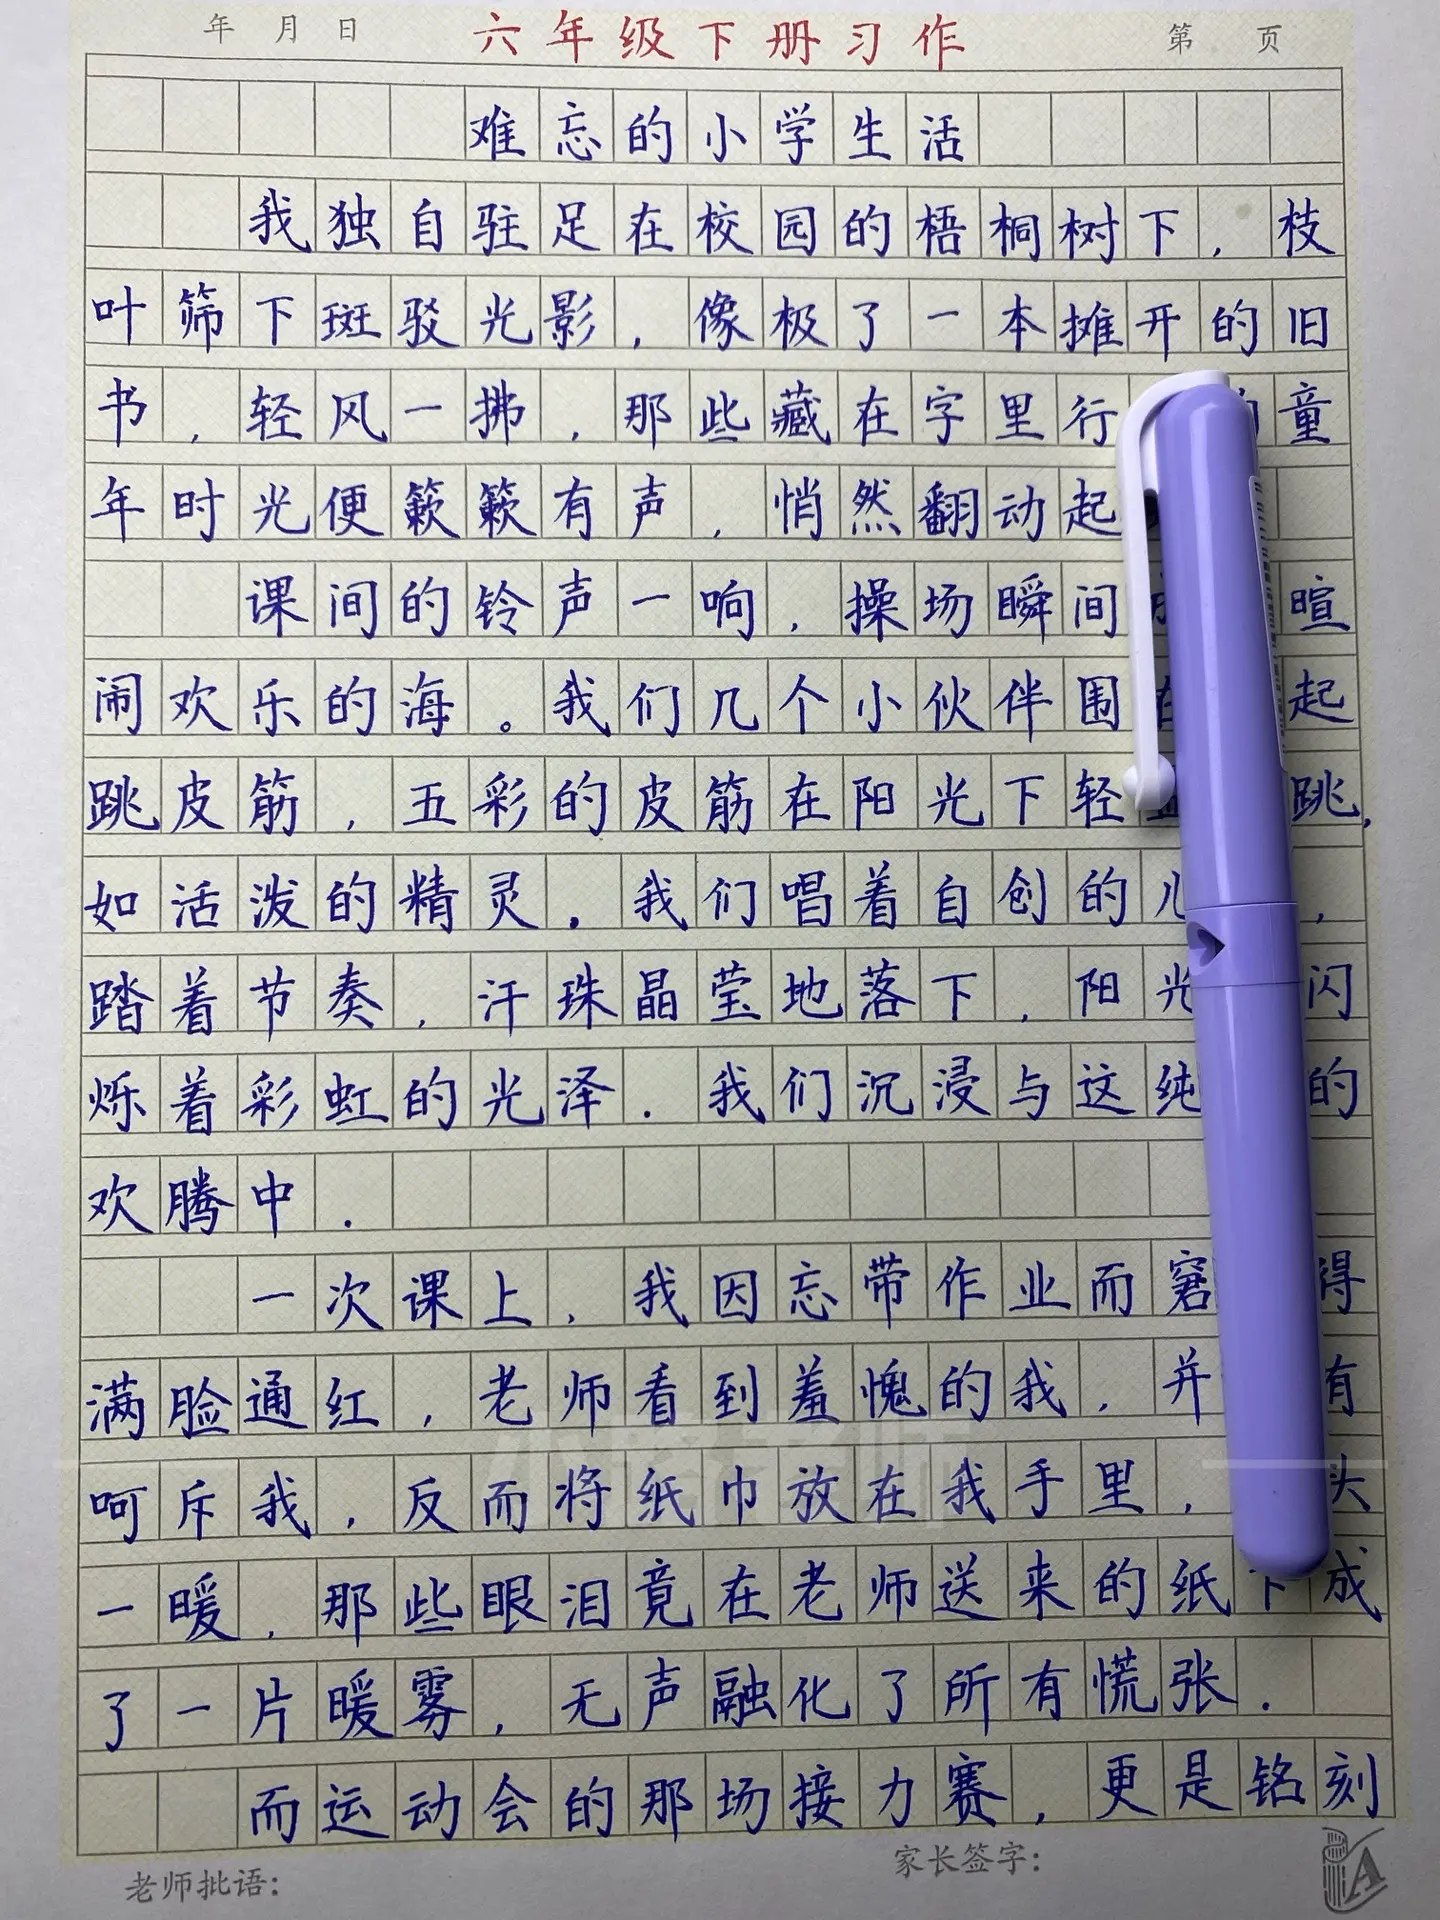 年 月 日 六年级下册习作 第 页
难忘的小学生活
我独自驻足在校园的梧桐树下，枝
叶筛下斑驳光影，像极了一本摊开的旧
书，轻风一拂，那些藏在字里行 童
年时光便簌簌有声，悄然翻动起
课间的铃声一响，操场瞬间 暄
闹欢乐的海。我们几个小伙伴围在 起
跳皮筋，五彩的皮筋在阳光下轻 跳，
如活泼的精灵．我们唱着自创的儿 ，
踏着节奏，汗珠晶莹地落下，阳光 闪
烁着彩虹的光泽．我们沉浸与这纯 的
欢腾中．
一次课上，我因忘带作业而窘 得
满脸通红，老师看到羞愧的我，并 有
呵斥我，反而将纸巾放在我手里， 头
一暖，那些眼泪竟在老师送来的纸下成
了一片暖雾，无声融化了所有慌张．
而运动会的那场接力赛，更是铭刻
老师批语： 家长签字：